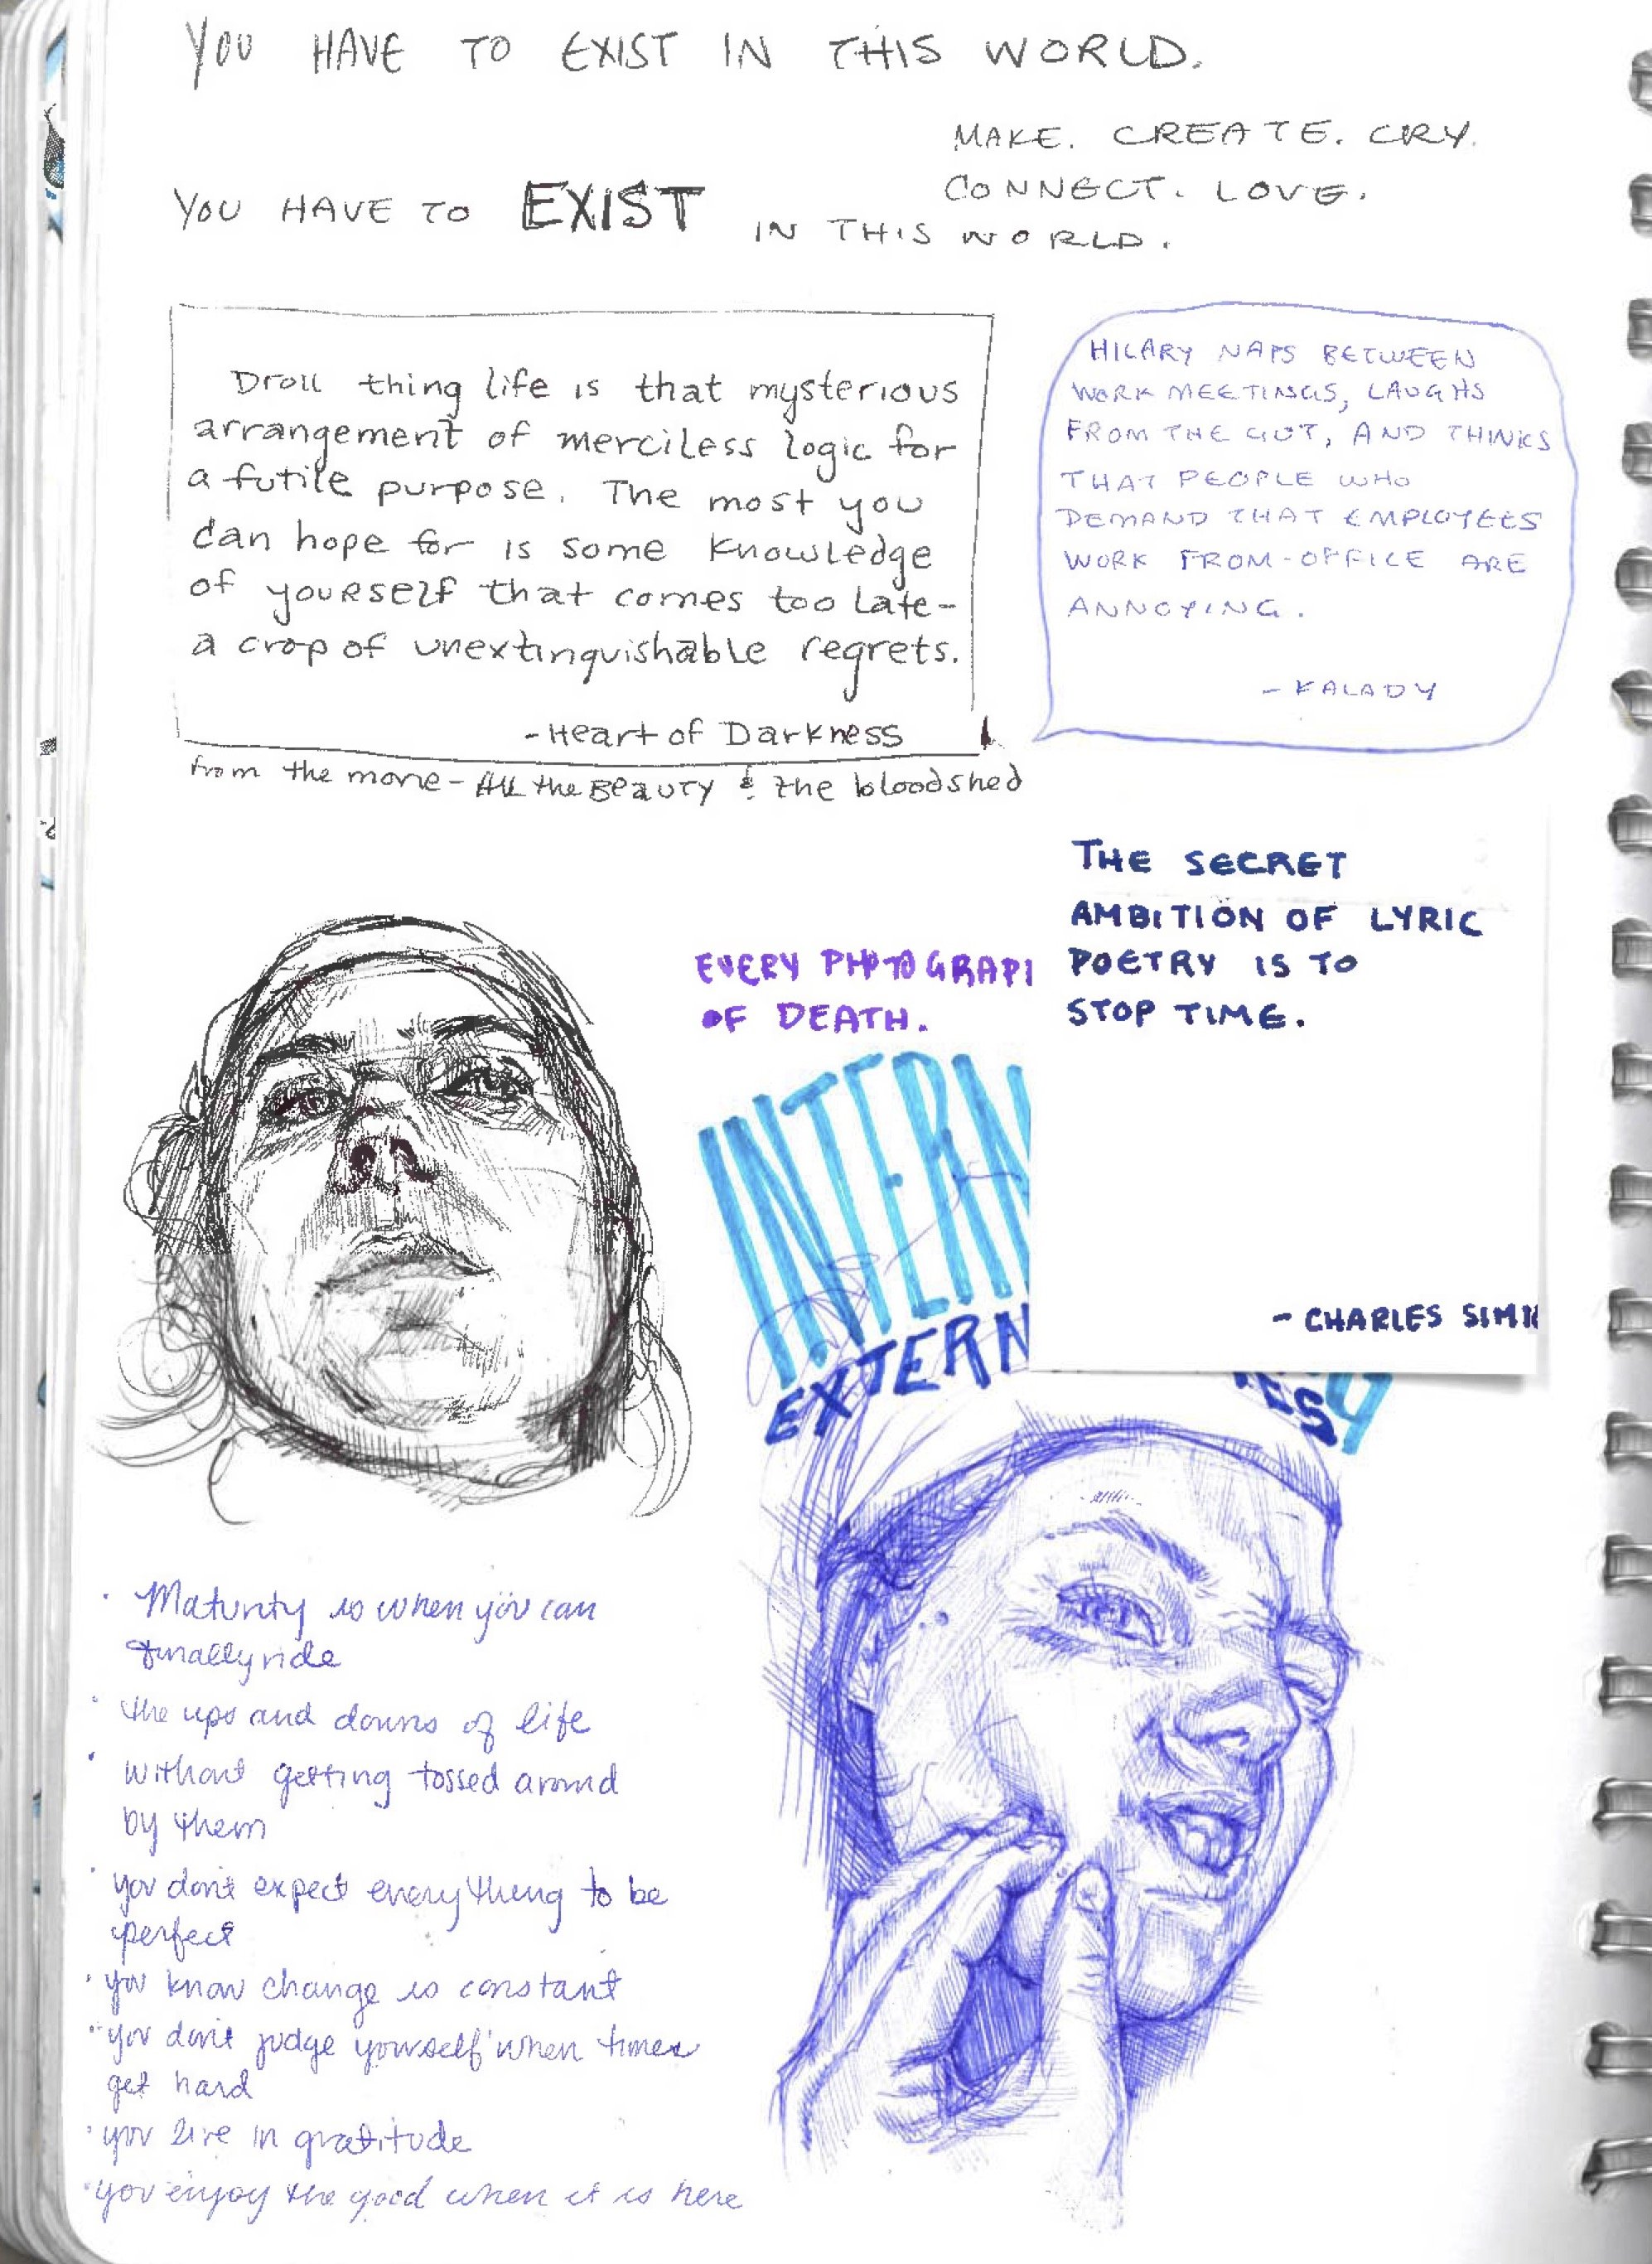 YOU HAVE TO EXIST IN THIS WORLD.
MAKE. CREATE. CRY.
CONNECT. LOVE.
YOU HAVE TO EXIST IN THIS WORLD.
Droll thing life is that mysterious
arrangement of merciless logic for
a futile purpose. The most you
can hope for is some knowledge
of yourself that comes too late-
a crop of unextinguishable regrets.
-Heart of Darkness
from the movie - All the Beauty & the bloodshed
HILARY NAPS BETWEEN
WORK MEETINGS, LAUGHS
FROM THE GUT, AND THINKS
THAT PEOPLE WHO
DEMAND THAT EMPLOYEES
WORK FROM-OFFICE ARE
ANNOYING.
- KALADY
EVERY PHOTOGRAP
OF DEATH.
THE SECRET
AMBITION OF LYRIC
POETRY IS TO
STOP TIME.
- CHARLES SIMI
INTERN
EXTERN
ES
• Maturity is when you can
finally ride
• the ups and downs of life
• without getting tossed around
by them
• you don't expect everything to be
perfect
• you know change is constant
• you don't judge yourself when times
get hard
• you live in gratitude
• you enjoy the good when it is here